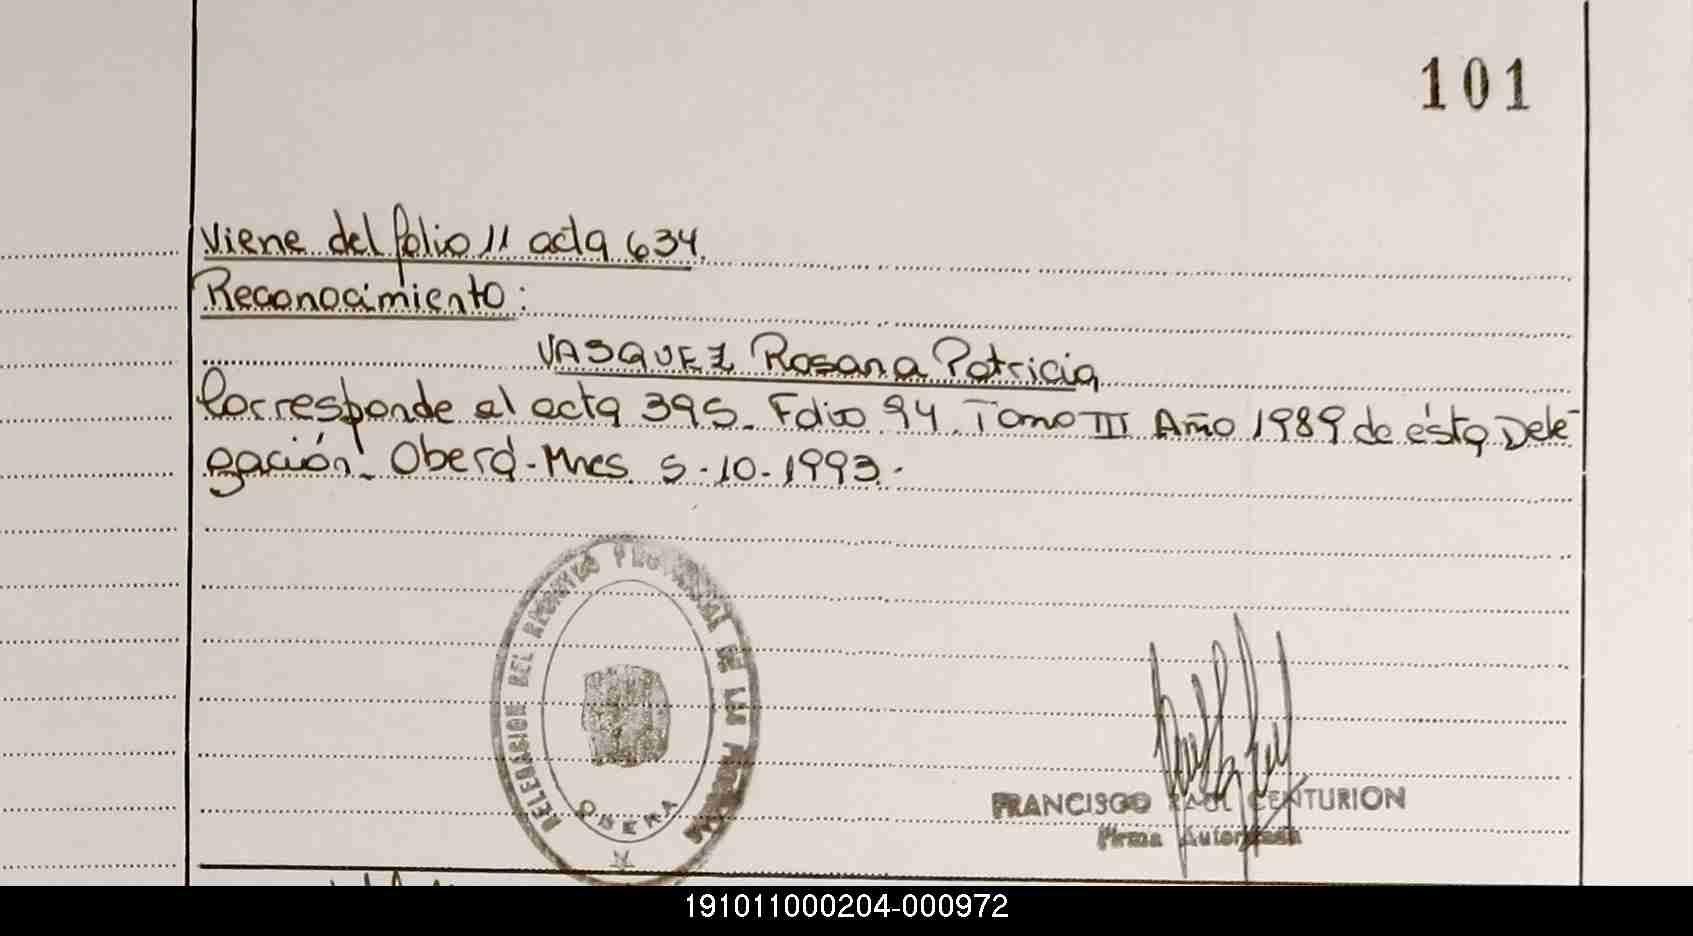 101
Viene del folio 11 acta 634.
Reconocimiento:
VASQUEZ Rosana Patricia
Corresponde al acta 395. Folio 94. Tomo III Año 1989 de ésta Dele-
gación. Oberá-Mnes. 5-10-1993.-
DELEGACION DEL REGISTRO PROVINCIAL DE LAS PERSONAS
OBERA
FRANCISCO RAUL CENTURION
Firma Autorizada
191011000204-000972